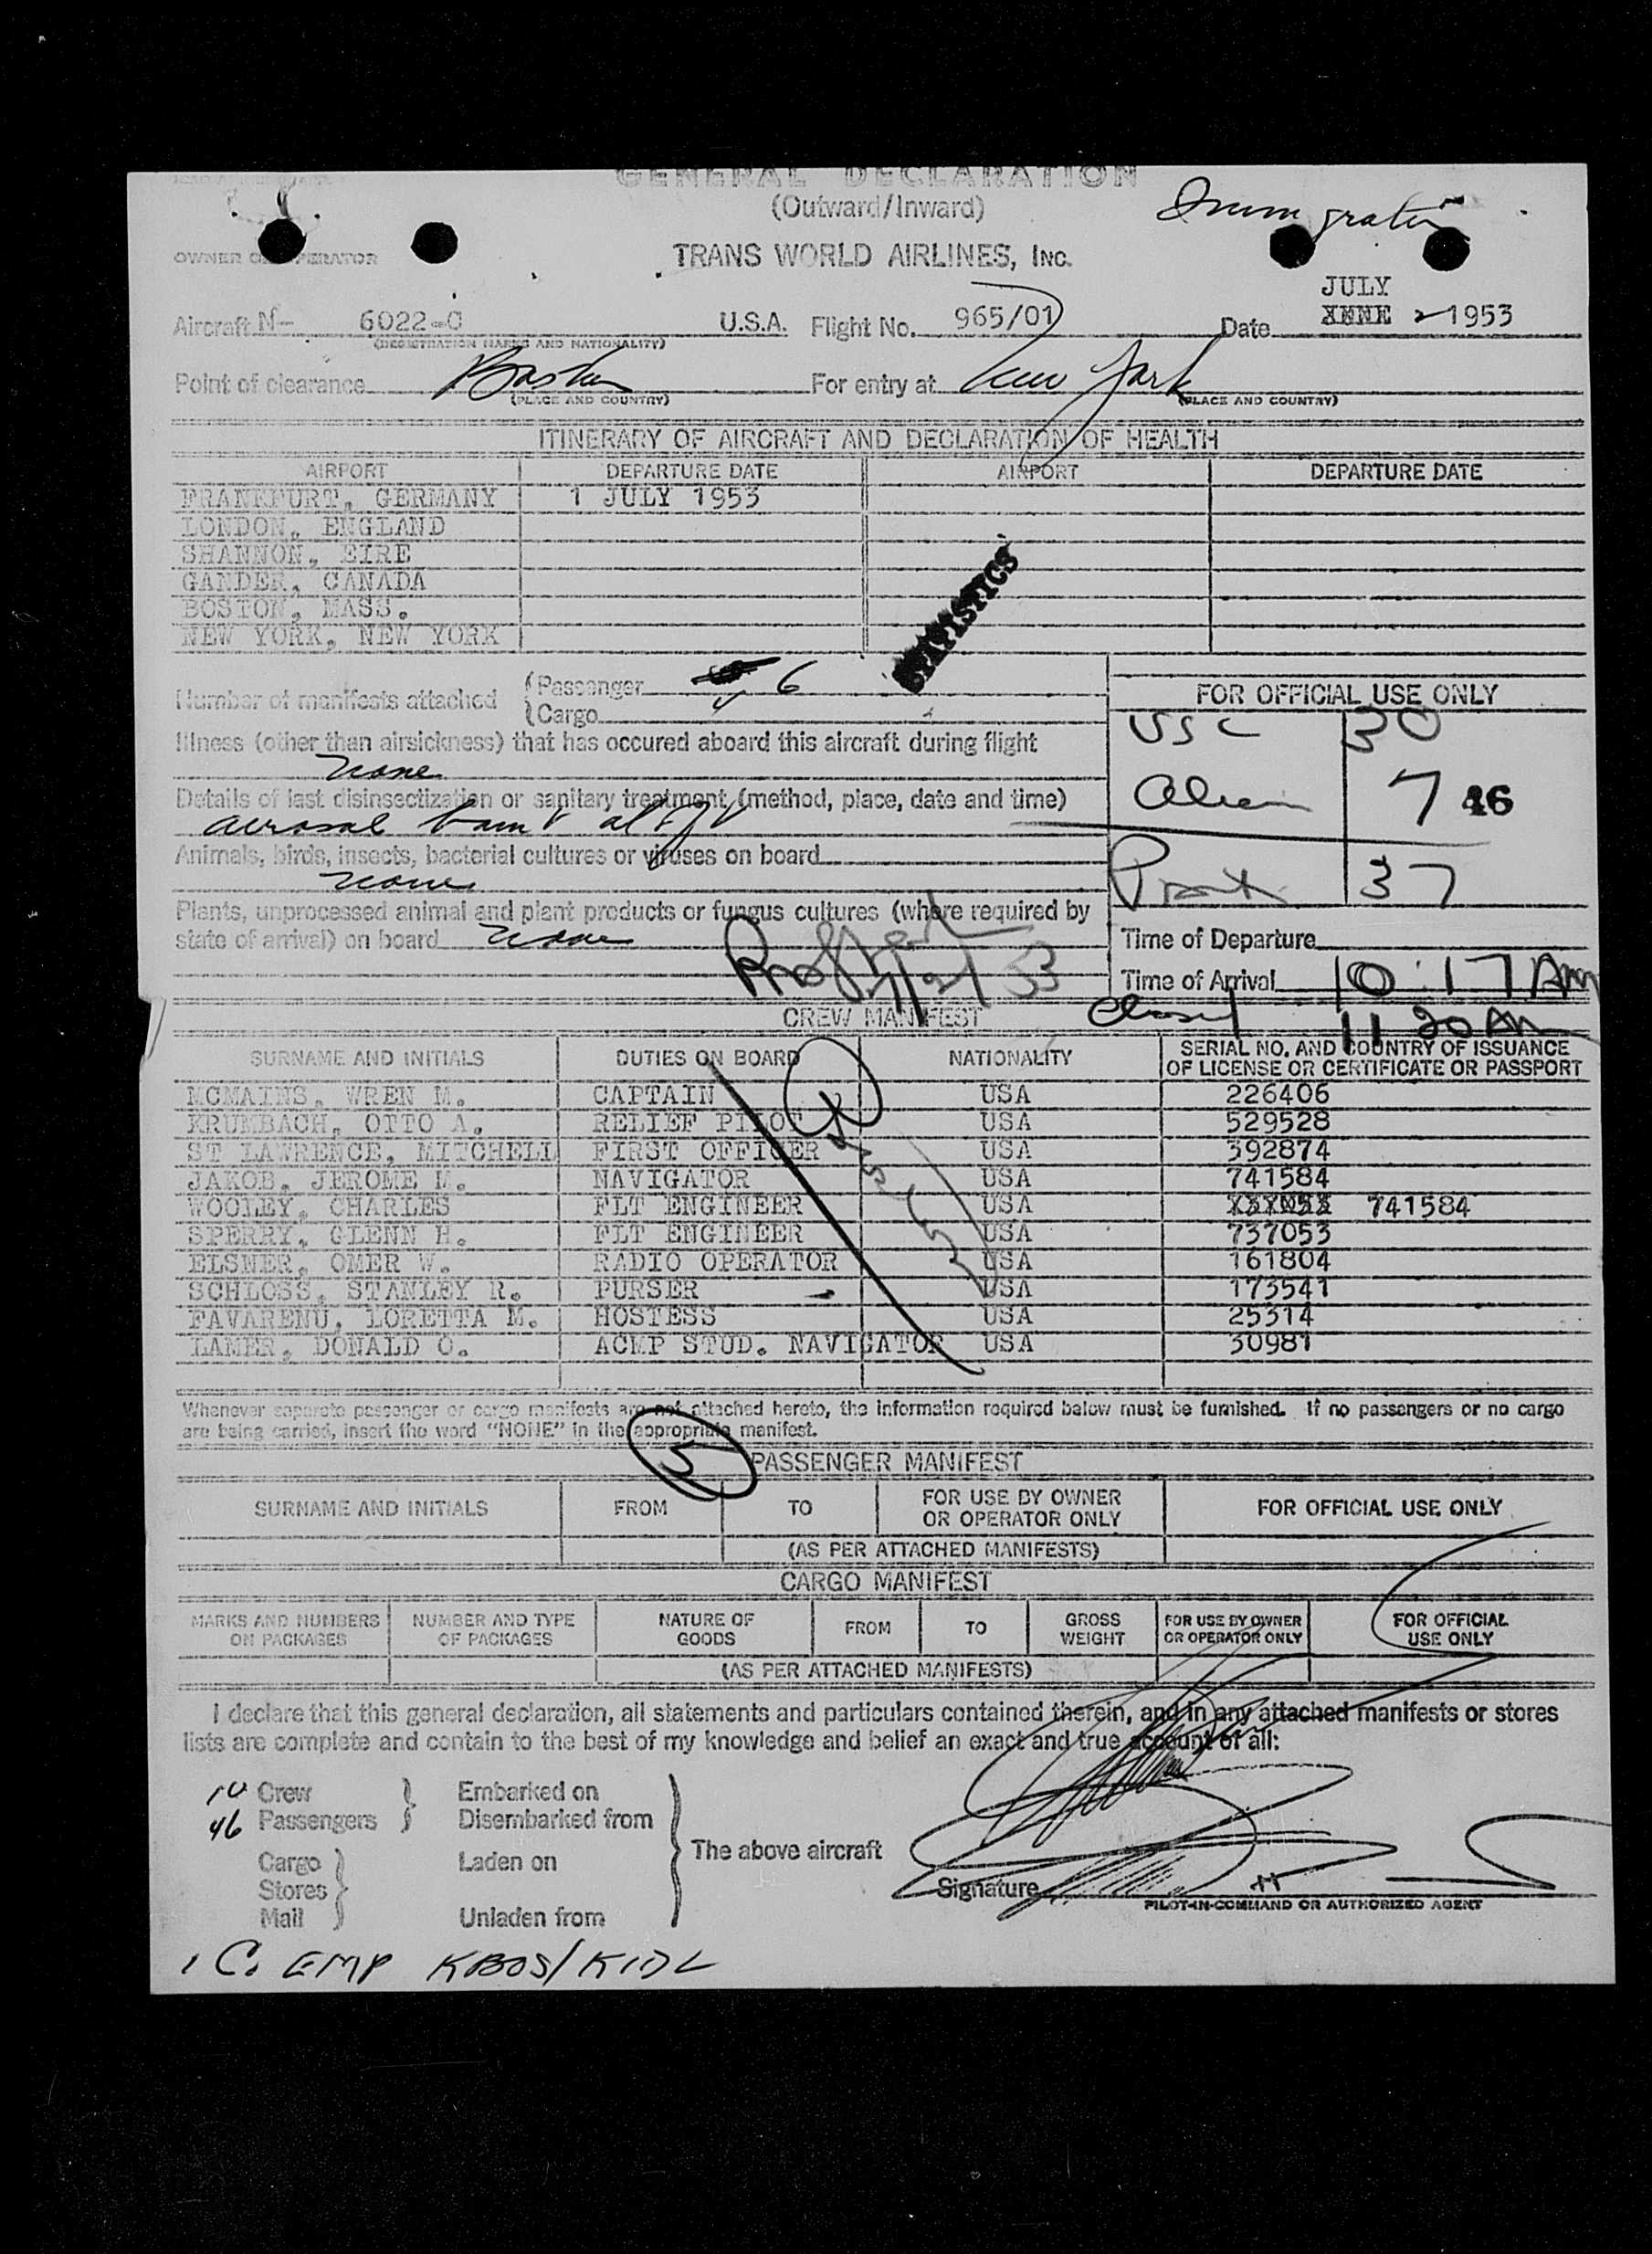 GENERAL DECLARATION
(Outward/Inward)
Immigration
OWNER OR OPERATOR
TRANS WORLD AIRLINES, INC.
JULY
Aircraft N- 6022-C U.S.A. Flight No. 965/01 Date 2 1953
(REGISTRATION MARKS AND NATIONALITY)
Point of clearance Boston For entry at New York
(PLACE AND COUNTRY) (PLACE AND COUNTRY)
ITINERARY OF AIRCRAFT AND DECLARATION OF HEALTH
AIRPORT DEPARTURE DATE AIRPORT DEPARTURE DATE
FRANKFURT, GERMANY 1 JULY 1953
LONDON, ENGLAND
SHANNON, EIRE
GANDER, CANADA
BOSTON, MASS.
NEW YORK, NEW YORK
STATISTICS
Number of manifests attached (Passenger 6
(Cargo
FOR OFFICIAL USE ONLY
USC 30
Alien 7 46
37
Illness (other than airsickness) that has occured aboard this aircraft during flight
None
Details of last disinsectization or sanitary treatment (method, place, date and time)
aerosol bomb
Animals, birds, insects, bacterial cultures or viruses on board
None
Plants, unprocessed animal and plant products or fungus cultures (where required by
state of arrival) on board None
Time of Departure
Time of Arrival 10:17 AM
Closed 11 20 AM
CREW MANIFEST
SURNAME AND INITIALS DUTIES ON BOARD NATIONALITY SERIAL NO. AND COUNTRY OF ISSUANCE OF LICENSE OR CERTIFICATE OR PASSPORT
MCMAINS, WREN M. CAPTAIN USA 226406
KRUMBACH, OTTO A. RELIEF PILOT USA 529528
ST LAWRENCE, MITCHELL FIRST OFFICER USA 392874
JAKOB, JEROME M. NAVIGATOR USA 741584
WOOLEY, CHARLES FLT ENGINEER USA 741584
SPERRY, GLENN H. FLT ENGINEER USA 737053
ELSNER, OMER W. RADIO OPERATOR USA 161804
SCHLOSS, STANLEY R. PURSER USA 173541
FAVARENU, LORETTA M. HOSTESS USA 25314
LAMER, DONALD O. ACMP STUD. NAVIGATOR USA 30981
Whenever separate passenger or cargo manifests are not attached hereto, the information required below must be furnished. If no passengers or no cargo
are being carried, insert the word "NONE" in the appropriate manifest.
5
PASSENGER MANIFEST
SURNAME AND INITIALS FROM TO FOR USE BY OWNER OR OPERATOR ONLY FOR OFFICIAL USE ONLY
(AS PER ATTACHED MANIFESTS)
CARGO MANIFEST
MARKS AND NUMBERS ON PACKAGES NUMBER AND TYPE OF PACKAGES NATURE OF GOODS FROM TO GROSS WEIGHT FOR USE BY OWNER OR OPERATOR ONLY FOR OFFICIAL USE ONLY
(AS PER ATTACHED MANIFESTS)
I declare that this general declaration, all statements and particulars contained therein, and in any attached manifests or stores
lists are complete and contain to the best of my knowledge and belief an exact and true account of all:
10 Crew Embarked on
46 Passengers Disembarked from
The above aircraft
Cargo Laden on
Stores
Mail Unladen from
Signature
PILOT-IN-COMMAND OR AUTHORIZED AGENT
1 C. EMP KBOS/KIDL